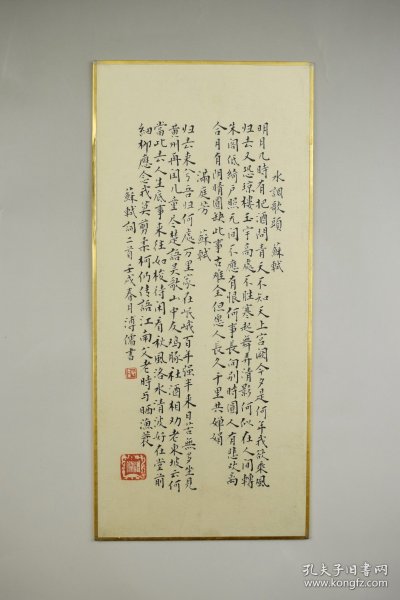 水調歌頭　蘇軾
明月几時有把酒問青天不知天上宮闕今夕是何年我欲乘風
归去又恐瓊樓玉宇高處不勝寒起舞弄清影何似在人间轉
朱阁低綺户照無眠不應有恨何事長向别時圓人有悲欢离
合月有阴晴圆缺此事古難全但愿人長久千里共嬋娟
滿庭芳　蘇軾
归去来兮吾归何處万里家在岷峨百年强半来日苦無多坐見
黄州再闰几童尽楚語吴歌山中友鸡豚社酒相劝老東坡云何
當此去人生底事来往如梭待闲看秋風洛水清波好在堂前
細柳應念我莫剪柔柯仍传語江南父老時与晒漁蓑
蘇軾詞二首壬戌春月溥儒書
孔夫子旧书网
www.kongfz.com